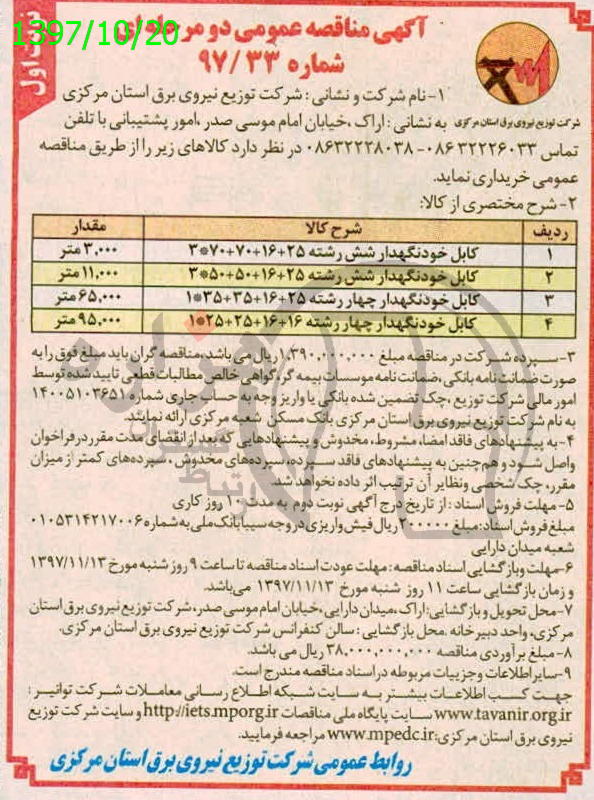 1397/10/20
نوبت اول
آگهی مناقصه عمومی دو مرحله ای
شماره ۹۷/۳۳
شرکت توزیع نیروی برق استان مرکزی
۱-نام شرکت و نشانی : شرکت توزیع نیروی برق استان مرکزی
به نشانی : اراک ،خیابان امام موسی صدر ،امور پشتیبانی با تلفن
تماس ۰۸۶۳۲۲۲۶۰۳۳-۰۸۶۳۲۲۲۸۰۳۸ در نظر دارد کالاهای زیر را از طریق مناقصه
عمومی خریداری نماید.
۲-شرح مختصری از کالا:
ردیف شرح کالا مقدار
۱ کابل خودنگهدار شش رشته ۲۵+۱۶+۷۰+۷۰*۳ ۳,۰۰۰ متر
۲ کابل خودنگهدار شش رشته ۲۵+۱۶+۵۰+۵۰*۳ ۱۱,۰۰۰ متر
۳ کابل خودنگهدار چهار رشته ۲۵+۱۶+۳۵+۳۵*۱ ۶۵,۰۰۰ متر
۴ کابل خودنگهدار چهار رشته ۱۶+۱۶+۲۵+۲۵*۱ ۹۵,۰۰۰ متر
۳- سپرده شرکت در مناقصه مبلغ ۱,۳۹۰,۰۰۰,۰۰۰ ریال می باشد،مناقصه گران باید مبلغ فوق را به
صورت ضمانت نامه بانکی ،ضمانت نامه موسسات بیمه گر،گواهی خالص مطالبات قطعی تایید شده توسط
امور مالی شرکت توزیع ،چک تضمین شده بانکی یا واریز وجه به حساب جاری شماره ۱۴۰۰۵۱۰۳۶۵۱
به نام شرکت توزیع نیروی برق استان مرکزی بانک مسکن شعبه مرکزی ارائه نمایند.
۴- به پیشنهادهای فاقد امضا، مشروط، مخدوش و پیشنهادهایی که بعد از انقضای مدت مقرر در فراخوان
واصل شود و هم چنین به پیشنهادهای فاقد سپرده، سپرده های مخدوش ، سپرده های کمتر از میزان
مقرر، چک شخصی و نظایر آن ترتیب اثر داده نخواهد شد.
۵- مهلت فروش اسناد : از تاریخ درج آگهی نوبت دوم به مدت ۱۰ روز کاری
مبلغ فروش اسناد: مبلغ ۲۰۰۰۰۰ ریال فیش واریزی در وجه سیبا بانک ملی به شماره ۰۱۰۵۳۱۴۲۱۷۰۰۶
شعبه میدان دارایی
۶-مهلت و بازگشایی اسناد مناقصه : مهلت عودت اسناد مناقصه تا ساعت ۹ روز شنبه مورخ ۱۳۹۷/۱۱/۱۳
و زمان بازگشایی ساعت ۱۱ روز شنبه مورخ ۱۳۹۷/۱۱/۱۳ می باشد.
۷-محل تحویل و بازگشایی: اراک ،میدان دارایی،خیابان امام موسی صدر، شرکت توزیع نیروی برق استان
مرکزی، واحد دبیرخانه .محل بازگشایی : سالن کنفرانس شرکت توزیع نیروی برق استان مرکزی.
۸- مبلغ برآوردی مناقصه ۳۸,۰۰۰,۰۰۰,۰۰۰ ریال می باشد.
۹-سایر اطلاعات و جزییات مربوطه در اسناد مناقصه مندرج است.
جهت کسب اطلاعات بیشتر به سایت شبکه اطلاع رسانی معاملات شرکت توانیر :
www.tavanir.org.ir سایت پایگاه ملی مناقصات http://iets.mporg.ir و سایت شرکت توزیع
نیروی برق استان مرکزی: www.mpedc.ir مراجعه فرمایید.
روابط عمومی شرکت توزیع نیروی برق استان مرکزی